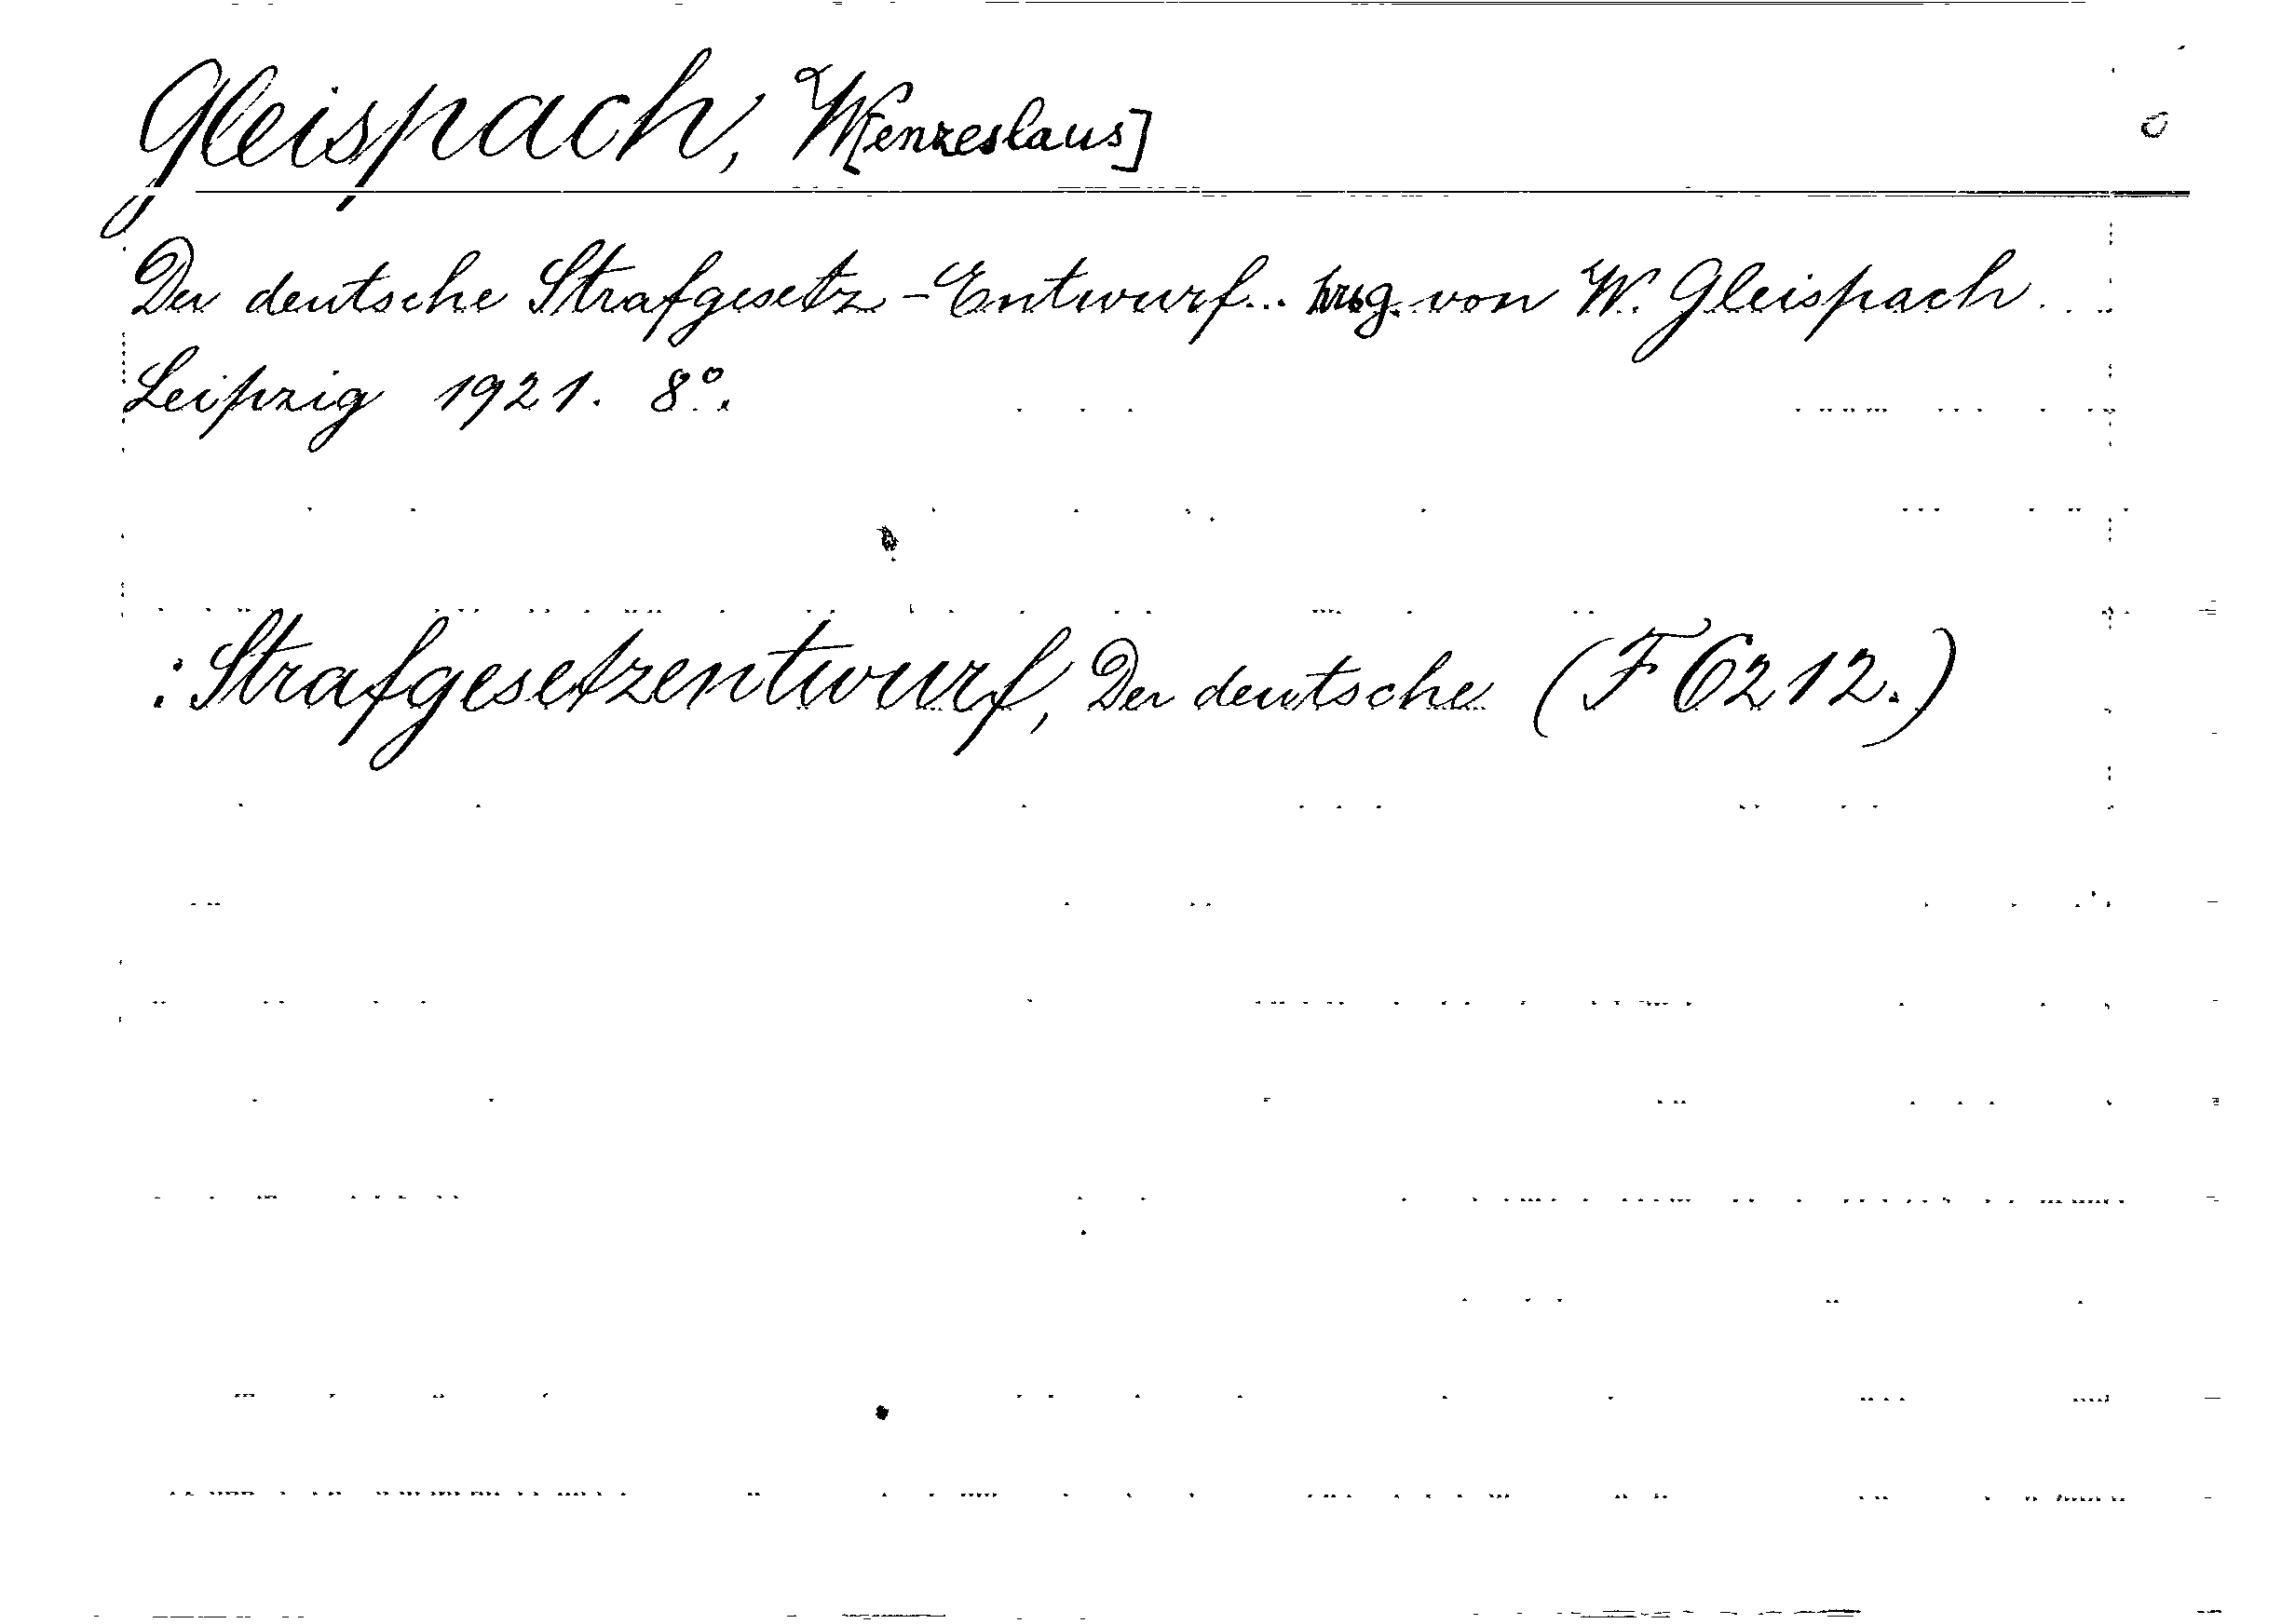 Gleispach, W[enzeslaus]
Der deutsche Strafgesetz-Entwurf... hrsg. von W. Gleispach.
Leipzig 1921. 8°.
: Strafgesetzentwurf, Der deutsche (F 6212.)